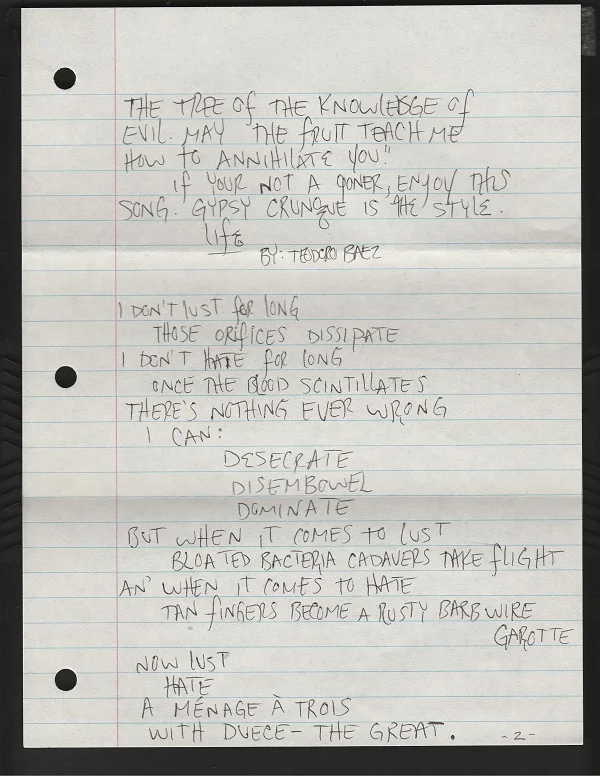 THE TREE OF THE KNOWLEDGE OF
EVIL. MAY "THE FRUIT TEACH ME
HOW TO ANNIHILATE YOU!"
IF YOUR NOT A GONER, ENJOY THIS
SONG. GYPSY CRUNQUE IS THE STYLE.
LIFE
BY: TEODORO BAEZ
I DON'T LUST FOR LONG
THOSE ORIFICES DISSIPATE
I DON'T HATE FOR LONG
ONCE THE BLOOD SCINTILLATES
THERE'S NOTHING EVER WRONG
I CAN:
DESECRATE
DISEMBOWEL
DOMINATE
BUT WHEN IT COMES TO LUST
BLOATED BACTERIA CADAVERS TAKE FLIGHT
AN' WHEN IT COMES TO HATE
TAN FINGERS BECOME A RUSTY BARBWIRE
GAROTTE
NOW LUST
HATE
A MÉNAGE À TROIS
WITH DUECE- THE GREAT.
-2-